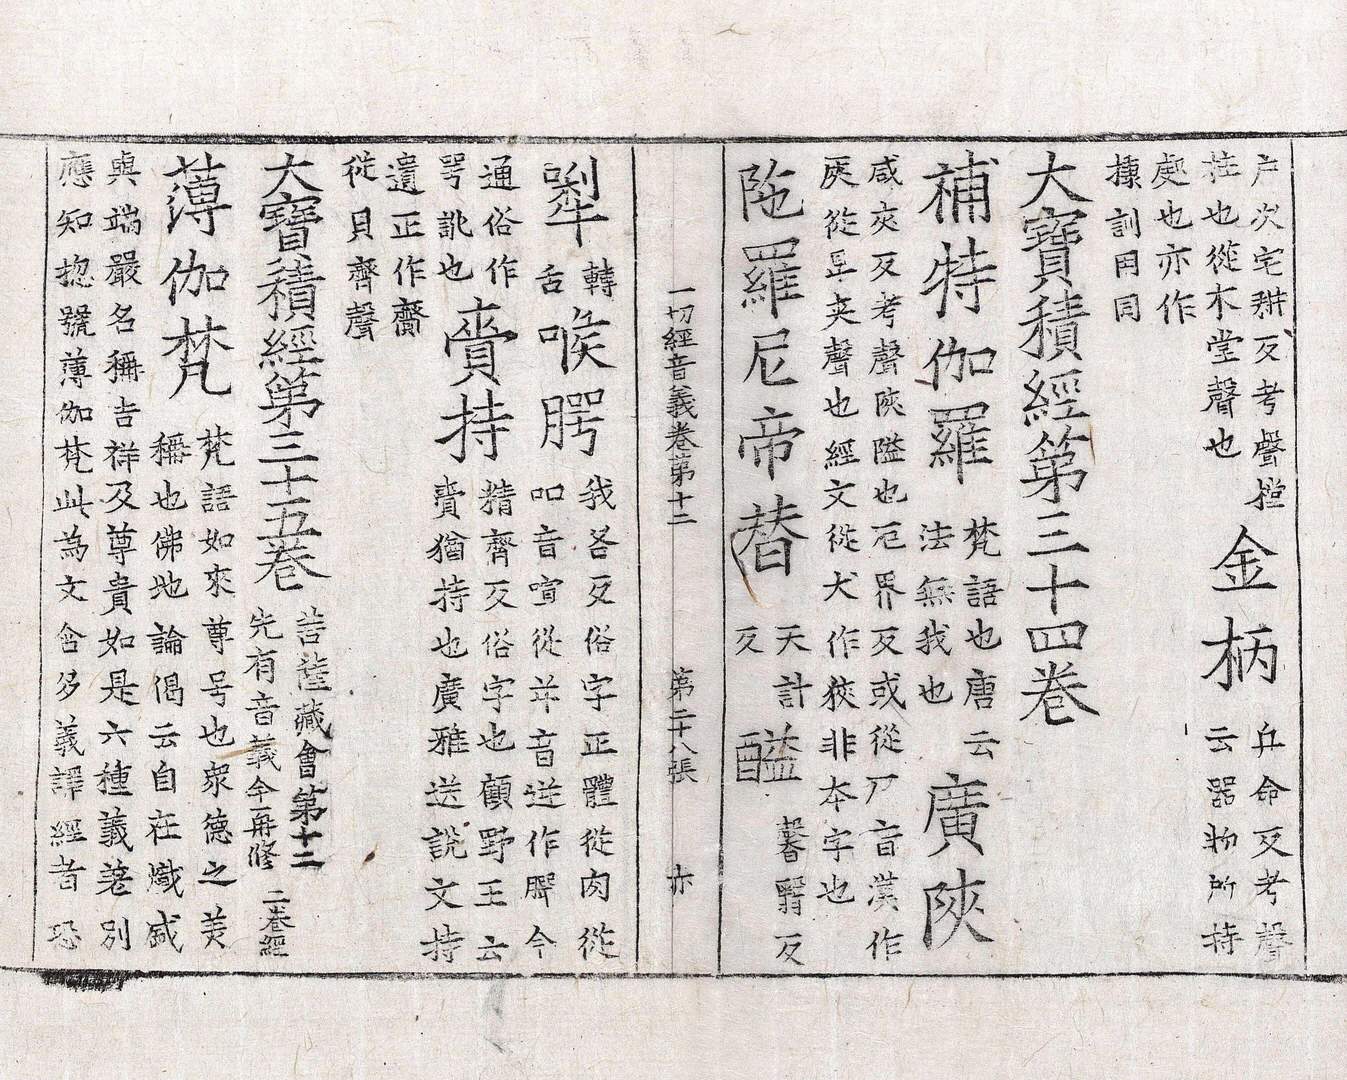 戶次宅耕反考聲摚
柱也從木堂聲也
金柄
兵命反考聲
云器物所持
處也亦作
訓用同
大寶積經第三十四卷
補特伽羅
梵語也唐云
法無我也
廣陜
咸夾反考聲陜隘也厄界反或從厂音漢作
從𨸏夾聲也經文從犬作狹非本字也
陁羅尼帝替
天計
反
醯
馨醫反
一切經音義卷第十二 第二十八張 亦
轉
舌
喉腭
我各反俗字正體從肉從
吅音喧從屰音逆作㖾今
通俗作
咢訛也
賷持
精齊反俗字也顧野王云
賷猶持也廣雅送說文持
遺正作齎
從貝齊聲
大寶積經第三十五卷
菩薩藏會第十二
先有音義今再修
二卷經
薄伽梵
梵語如來尊号也衆德之美
稱也佛地論偈云自在熾盛
與端嚴名稱吉祥及尊貴如是六種義差別
應知揔號薄伽梵此為文含多義譯經者恐